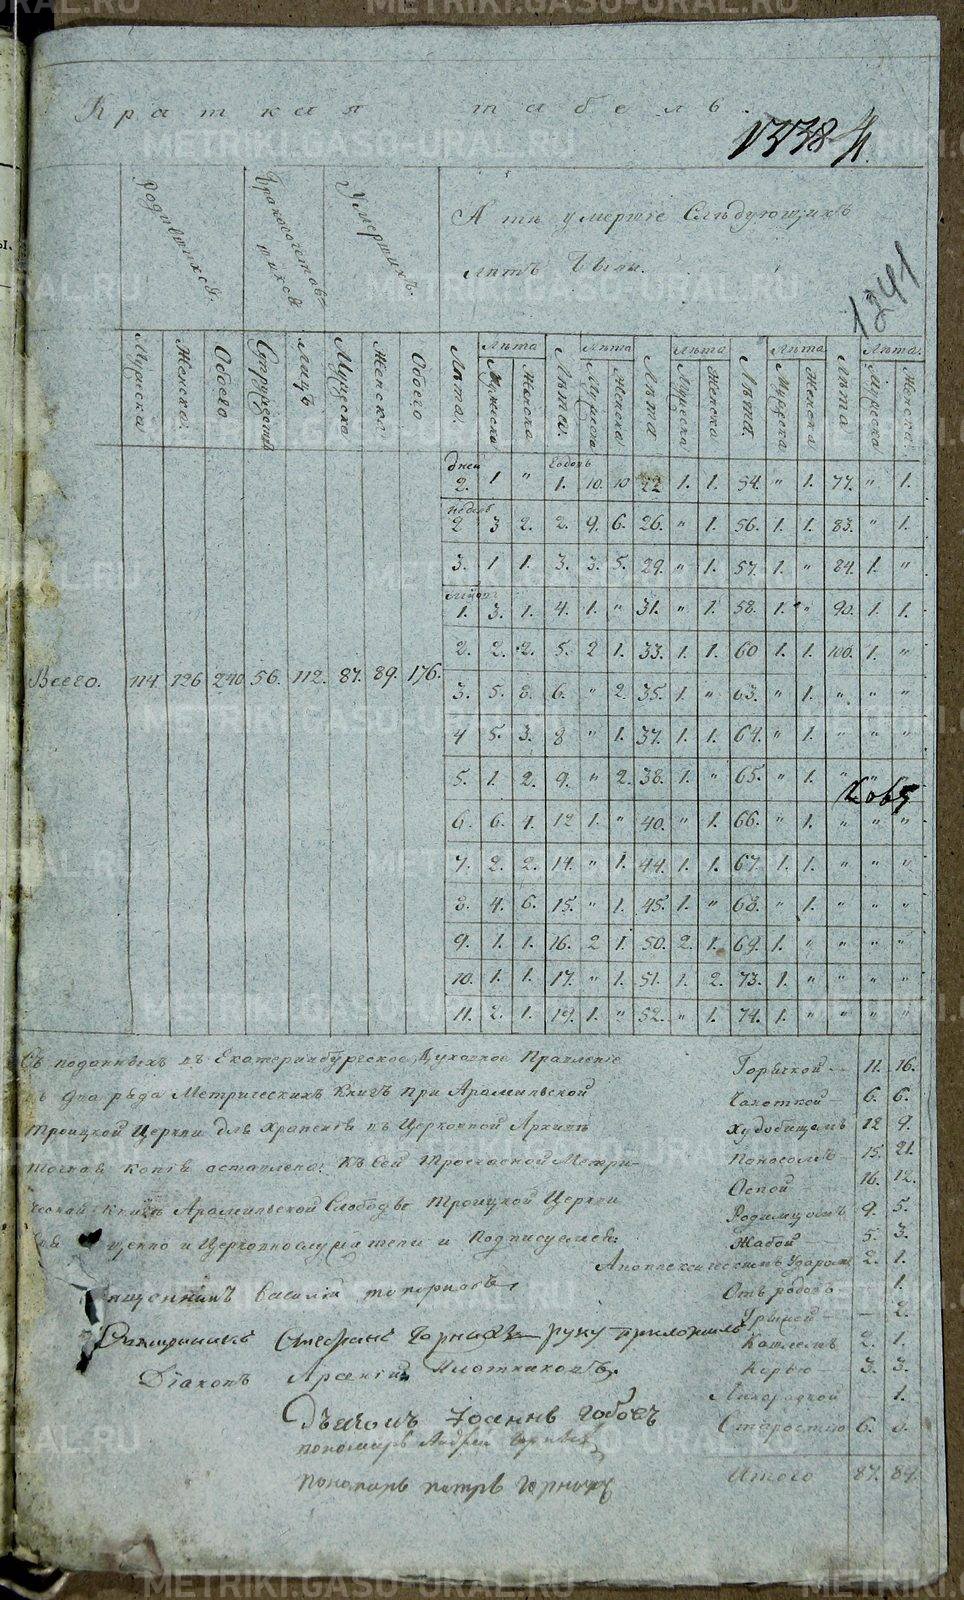 Краткая табель.
1338
1241
Родившихся.
Бракосочетавшихся
Умершихъ.
А тѣ умершіе Слѣдующихъ
лѣтъ были.
Мужеска Женска. Обоего Супружествъ Лицъ Мужеска Женска. Обоего Лѣта. Лѣта Мужеска Женска Лѣта. Лѣта Мужеска Женска Лѣта Лѣта Мужеска Женска Лѣта. Лѣта Мужеска Женска Лѣта Лѣта. Мужеска Женска.
дней 2. 1 " Годовъ 1. 10. 10 22 1. 1. 54. " 1. 77. " 1.
недель 2 3 2. 2. 9. 6. 26. " 1. 56. 1. 1. 83. " 1.
3. 1 1. 3. 3. 5. 29. " 1. 57. 1. " 84. 1. "
1. 3. 1. 4. 1. " 31. " 1. 58. 1. " 90. 1. 1.
2. 2. 2. 5. 2 1. 33. 1. 1. 60 1. 1. 100. 1. "
Всего. 114. 126 240 56. 112. 87. 89. 176.
3. 5. 8. 6. " 2. 35. 1. " 63. " 1. " " "
4 5. 3. 8 " 1. 37. 1. 1. 64. " 1. " " "
5. 1. 2. 9. " 2. 38. 1. " 65. " 1. " "
6. 6. 4. 12 1. " 40. " 1. 66. " 1. " " "
7. 2. 2. 14. " 1. 44. 1. 1. 67. 1. 1. " " "
8. 4. 6. 15. " 1. 45. 1. " 68. " 1. " " "
9. 1. 1. 16. 2 1. 50. 2. 1. 69. 1. " " " "
10. 1. 1. 17. " 1. 51. 1. 2. 73. 1. " " " "
11. 2. 1. 19. 1. " 52. " 1. 74. 1. " " " "
Съ поданныхъ въ Екатеринбургское Духовное Правленіе
два ряда Метрическихъ Книгъ при Арамильской
Троицкой Церкви для храненія въ Церковной Архивѣ
точная копія оставлена; Къ сей Троечасной Метри-
ческой Книгѣ Арамильской Слободы Троицкой Церкви
и Церковнослужители и Подписуемся:
Василій Топорковъ
Священникъ Стефанъ Горныхъ руку приложилъ
Діаконъ Арсеній Плотниковъ.
Дьячокъ Іоаннъ
пономарь Андрей
Пономарь петръ горныхъ
Горячкой — 11. 16.
Чахоткой — 6. 6.
Худобищемъ 12 9.
Поносомъ — 15. 21.
Оспой — 16. 12.
Родимцомъ 9. 5.
Жабой — 5. 3.
Апоплексическимъ Ударомъ 2. 1.
Отъ родовъ — 1.
Грыжей — 2.
Кашлемъ 2. 1.
Корью — 3. 3.
Лихорадкой — 1.
Старостію 6.
Итого 87. 89.